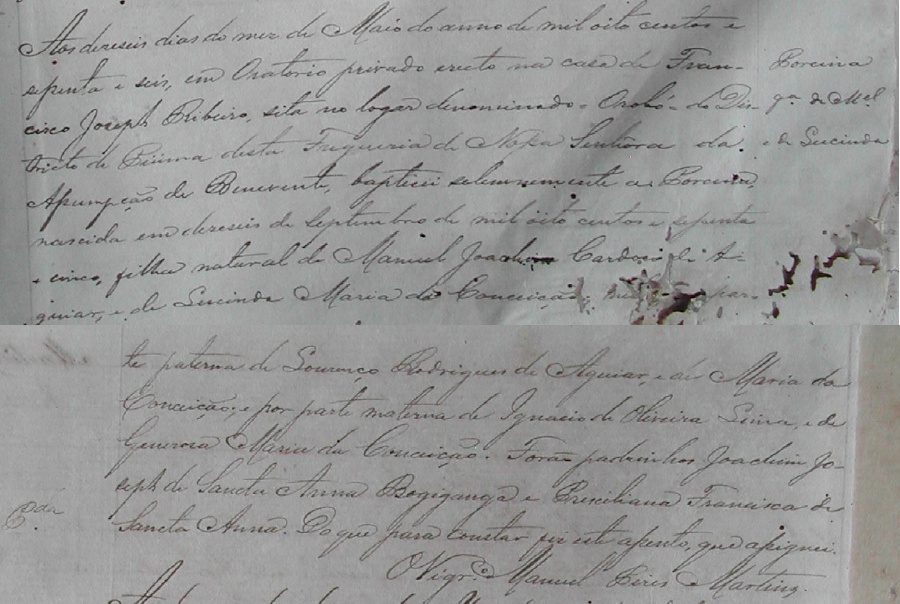 Aos deseseis dias do mez de Maio do anno de mil oito centos e
septenta e seis, em Oratorio privado erecto na casa de Fran-
cisco Joseph Ribeiro, sita no logar denominado - Orobó - do Dis-
tricto de Piúma desta Freguezia de Nossa Senhora da
Assumpção de Benevente, baptisei solemnemente a Porcina,
nascida em deseseis de Septembro de mil oito centos e septenta
e cinco, filha natural de Manuel Joachim Cardoso de A-
guiar, e de Lucinda Maria da Conceição, par-
Porcina
fª de Mel
e de Lucinda
te paterna de Lourenço Rodrigues de Aguiar, e de Maria da
Conceição; e por parte materna de Ignacio de Oliveira Lima, e de
Generosa Maria da Conceição. Forão padrinhos Joachim Jo-
seph de Sancta Anna Bogiganga e Presciliana Francisca de
Sancta Anna. Do que para constar fiz este assento, que assignei.
O Vigrº Manuel Pires Martins.